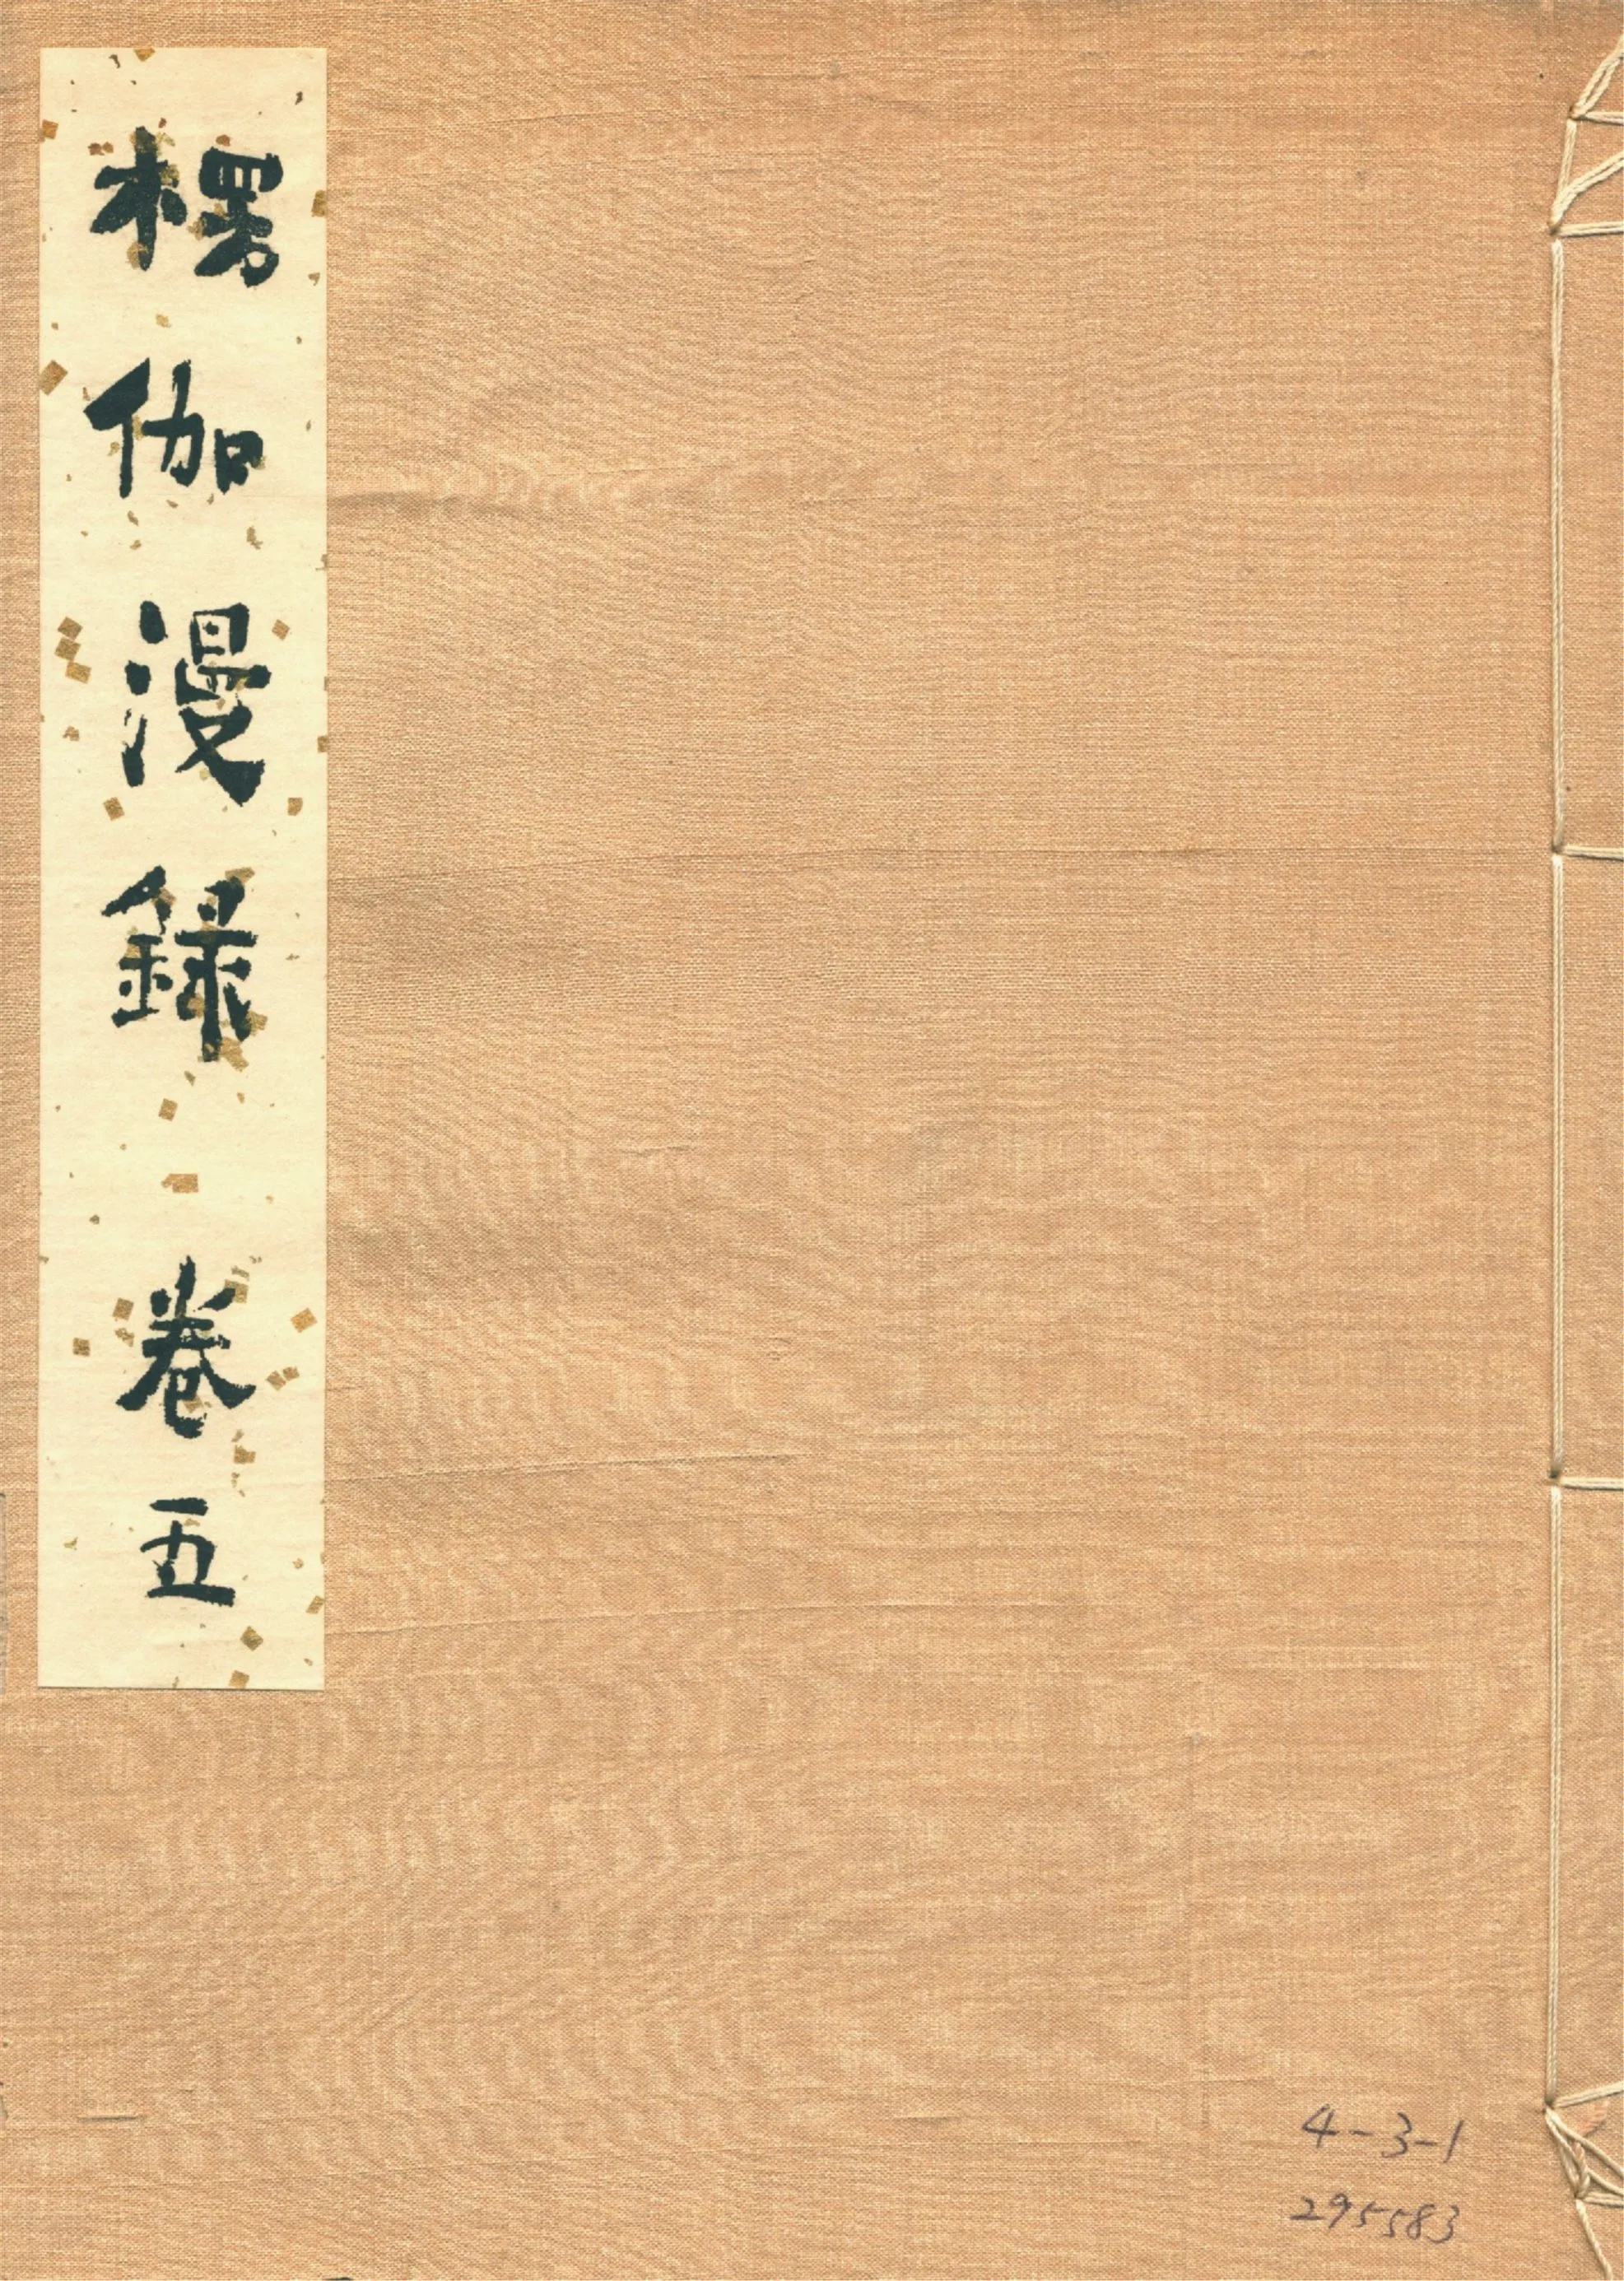 楞伽漫録 卷五
4-3-1
295583